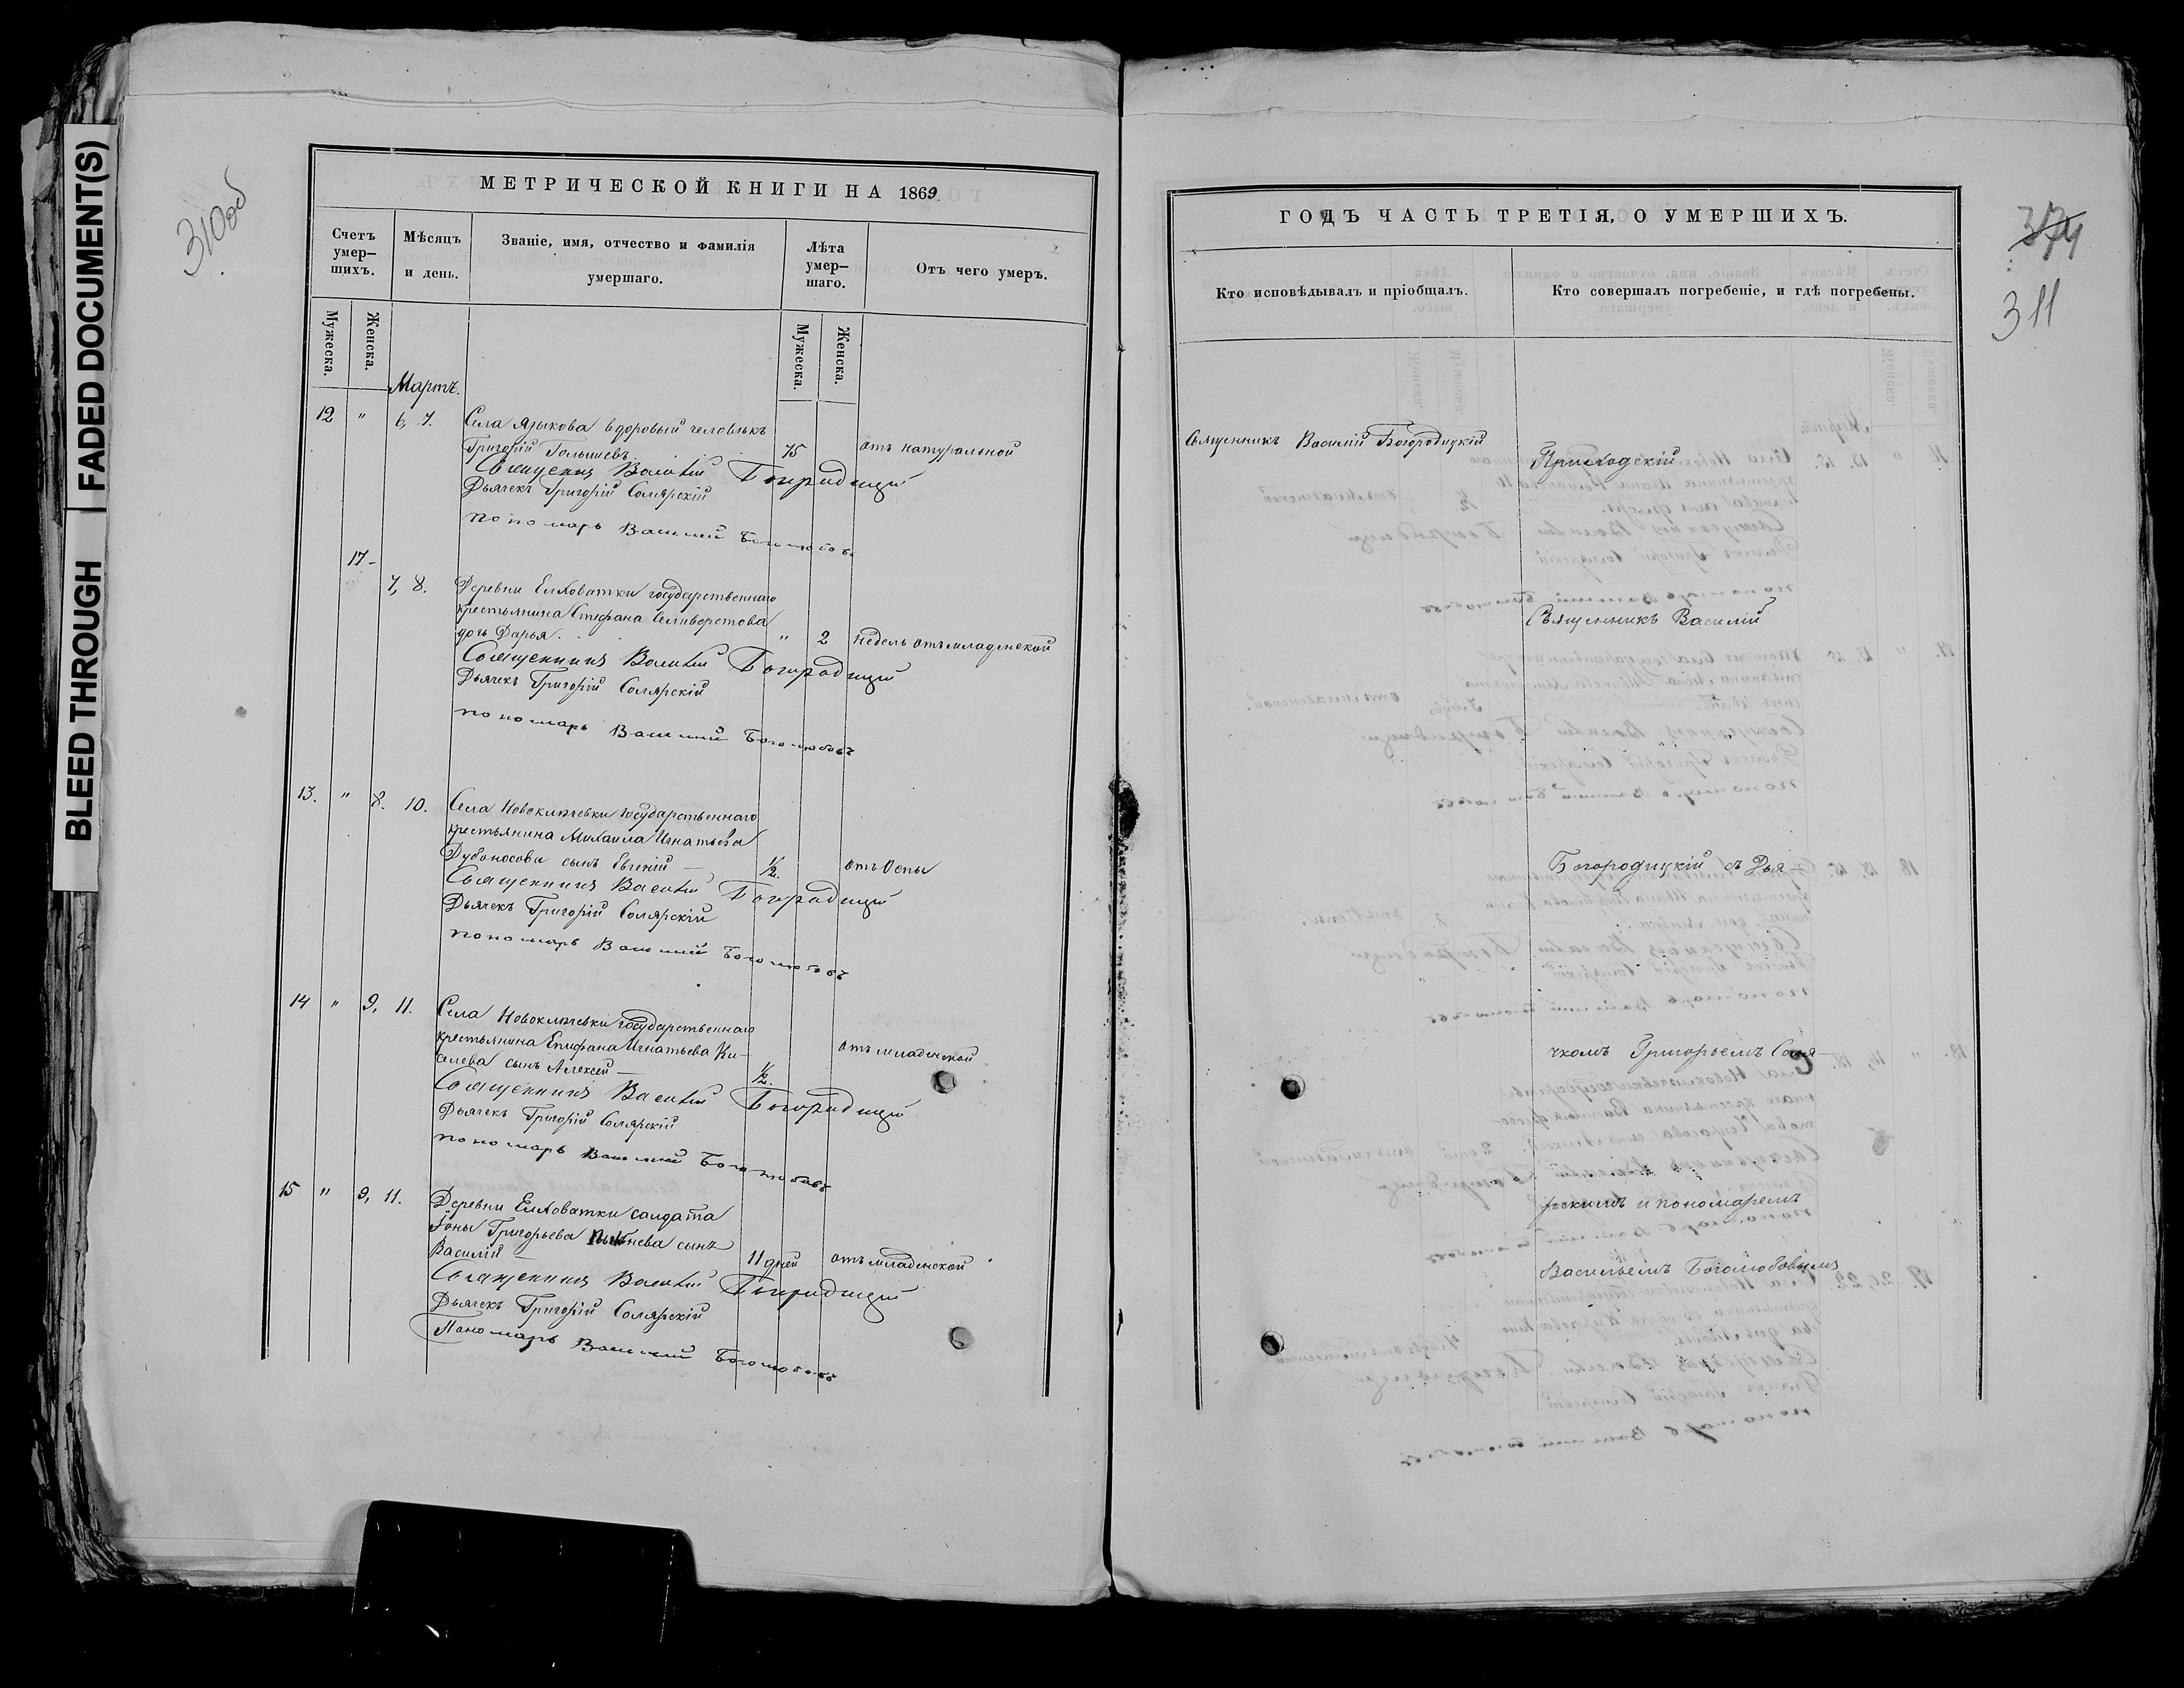 FADED DOCUMENT(S)
BLEED THROUGH
310об
МЕТРИЧЕСКОЙ КНИГИ НА 1869.
Счетъ умер–шихъ.
Мѣсяцъ и день.
Званіе, имя, отчество и фамилія умершаго.
Лѣта умер–шаго.
Отъ чего умеръ.
Мужеска.
Женска.
Мужеска.
Женска.
Мартъ.
12 " 6, 7. Села Языкова вдоровый человѣкъ
Григорій Голышевъ. 75 отъ натуральной
Священникъ Василій Богородицкій
Дьячекъ Григорій Солярскій
пономарь Василий Боголюбовъ
17 -
7, 8. Деревни Елховатки государственнаго
крестьянина Стефана Селиверстова
дочь Дарья. " 2 недель отъ младенской
Священникъ Василій Богородицкій
Дьячекъ Григорій Солярскій
пономарь Василий Боголюбовъ
13. " 8. 10. Села Новоключевки государственнаго
крестьянина Михаила Игнатьева
Дубоносова сынъ Евгеній — 1/2. отъ Оспы
Священникъ Василій Богородицкій
Дьячекъ Григорій Солярскій
пономарь Василий Боголюбовъ
14 " 9, 11. Села Новоключевки государственнаго
крестьянина Епифана Игнатьева Ки–
селева сынъ Алексей — 1/2. отъ младенской
Священникъ Василій Богородицкій
Дьячекъ Григорій Солярскій
пономарь Василий Боголюбовъ
15 " 9, 11. Деревни Елховатки солдата
Іоны Григорьева сынъ
Василій — 11 дней отъ младенской
Священникъ Василій Богородицкій
Дьячекъ Григорій Солярскій
Пономарь Василий Боголюбовъ
ГОДЪ ЧАСТЬ ТРЕТІЯ, О УМЕРШИХЪ.
374
311
Кто исповѣдывалъ и пріобщалъ.
Кто совершалъ погребеніе, и гдѣ погребены.
Священникъ Василій Богородицкій
Приходскій
Священникъ Василій
Богородицкій съ Дья–
чкомъ Григорьемъ Соля–
рскимъ и пономаремъ
Васильемъ Боголюбовымъ